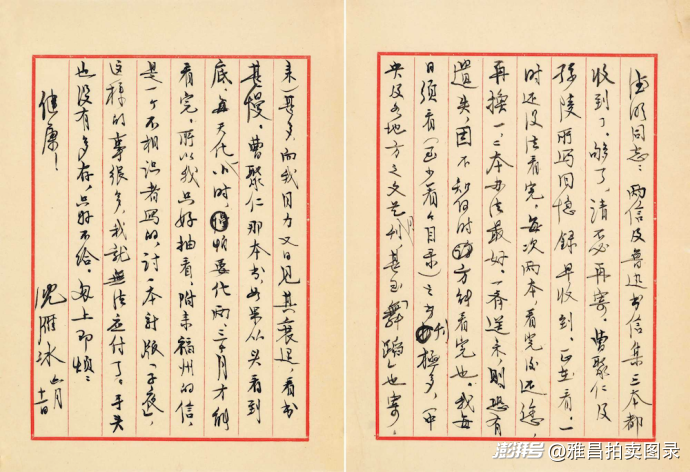 德沂同志：两信及鲁迅书信集三本都
收到了，够了，请不必再寄。曹聚仁及
孙陵所写回忆录早收到，正在看，一
时还没法看完，每次两本，看完后还您，
再换一二本办法最好。一齐送来，则恐有
遗失，因不知何时方能看完也。我每
日须看（至少看个目录）之书刊极多，（中
央及各地方之文艺月刊，甚至「舞蹈」也寄
来）甚多，而我目力又日见其衰退，看书
甚慢，曹聚仁那本书如果从头看到
底，每天化小时，恐怕要化两、三个月才能
看完，所以我只好抽看，附来福州的信，
是一个不相识者写的，讨一本新版《子夜》，
这样的事很多，我就无法应付了。手头
也没有多存，只好不给。匆上即颂
健康！
沈雁冰 五月
十一日
澎湃号
雅昌拍卖图录